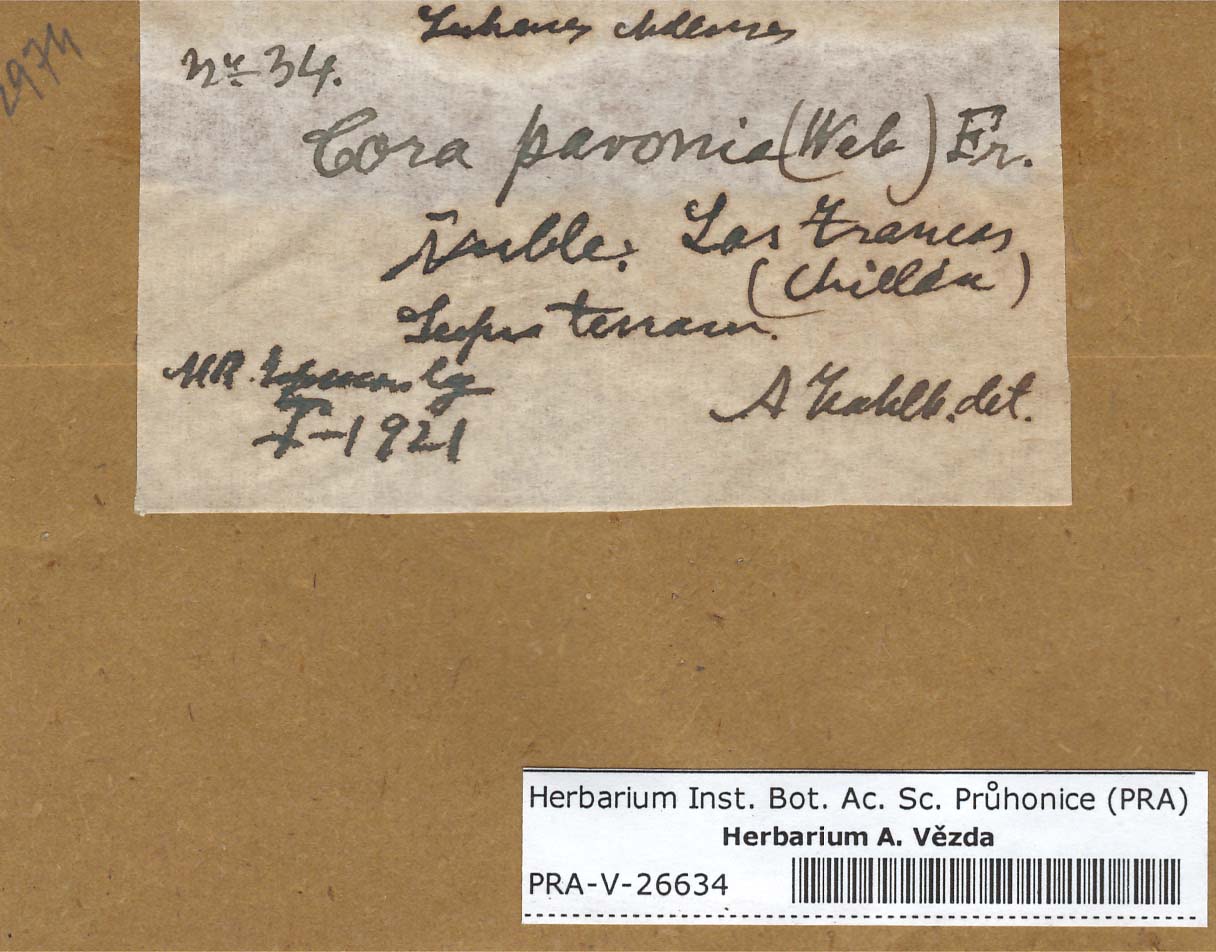 2974
Lichenes chilenses
Nº 34.
Cora pavonia (Web) Fr.
Ñuble: Las Trancas
(Chillán)
Supra terram.
MR. Espinosa lg
A Zahlb. det.
I-1921
Herbarium Inst. Bot. Ac. Sc. Průhonice (PRA)
Herbarium A. Vězda
PRA-V-26634